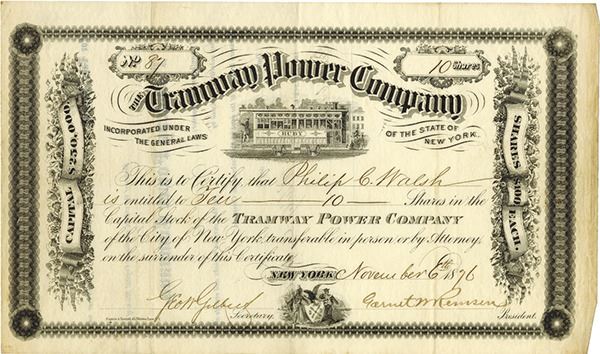 No. 87
10 Shares
THE Tramway Power Company,
INCORPORATED UNDER THE GENERAL LAWS
OF THE STATE OF NEW YORK.
RUBY
CAPITAL $250,000
SHARES $100 EACH.
This is to Certify, that Philip C. Walsh
is entitled to Ten 10 Shares in the
Capital Stock of the TRAMWAY POWER COMPANY
of the City of New York, transferable in person or by Attorney,
on the surrender of this Certificate.
NEW YORK November 6th 1876
Geo W Gilbert
Secretary.
Garnet W Remsen
President.